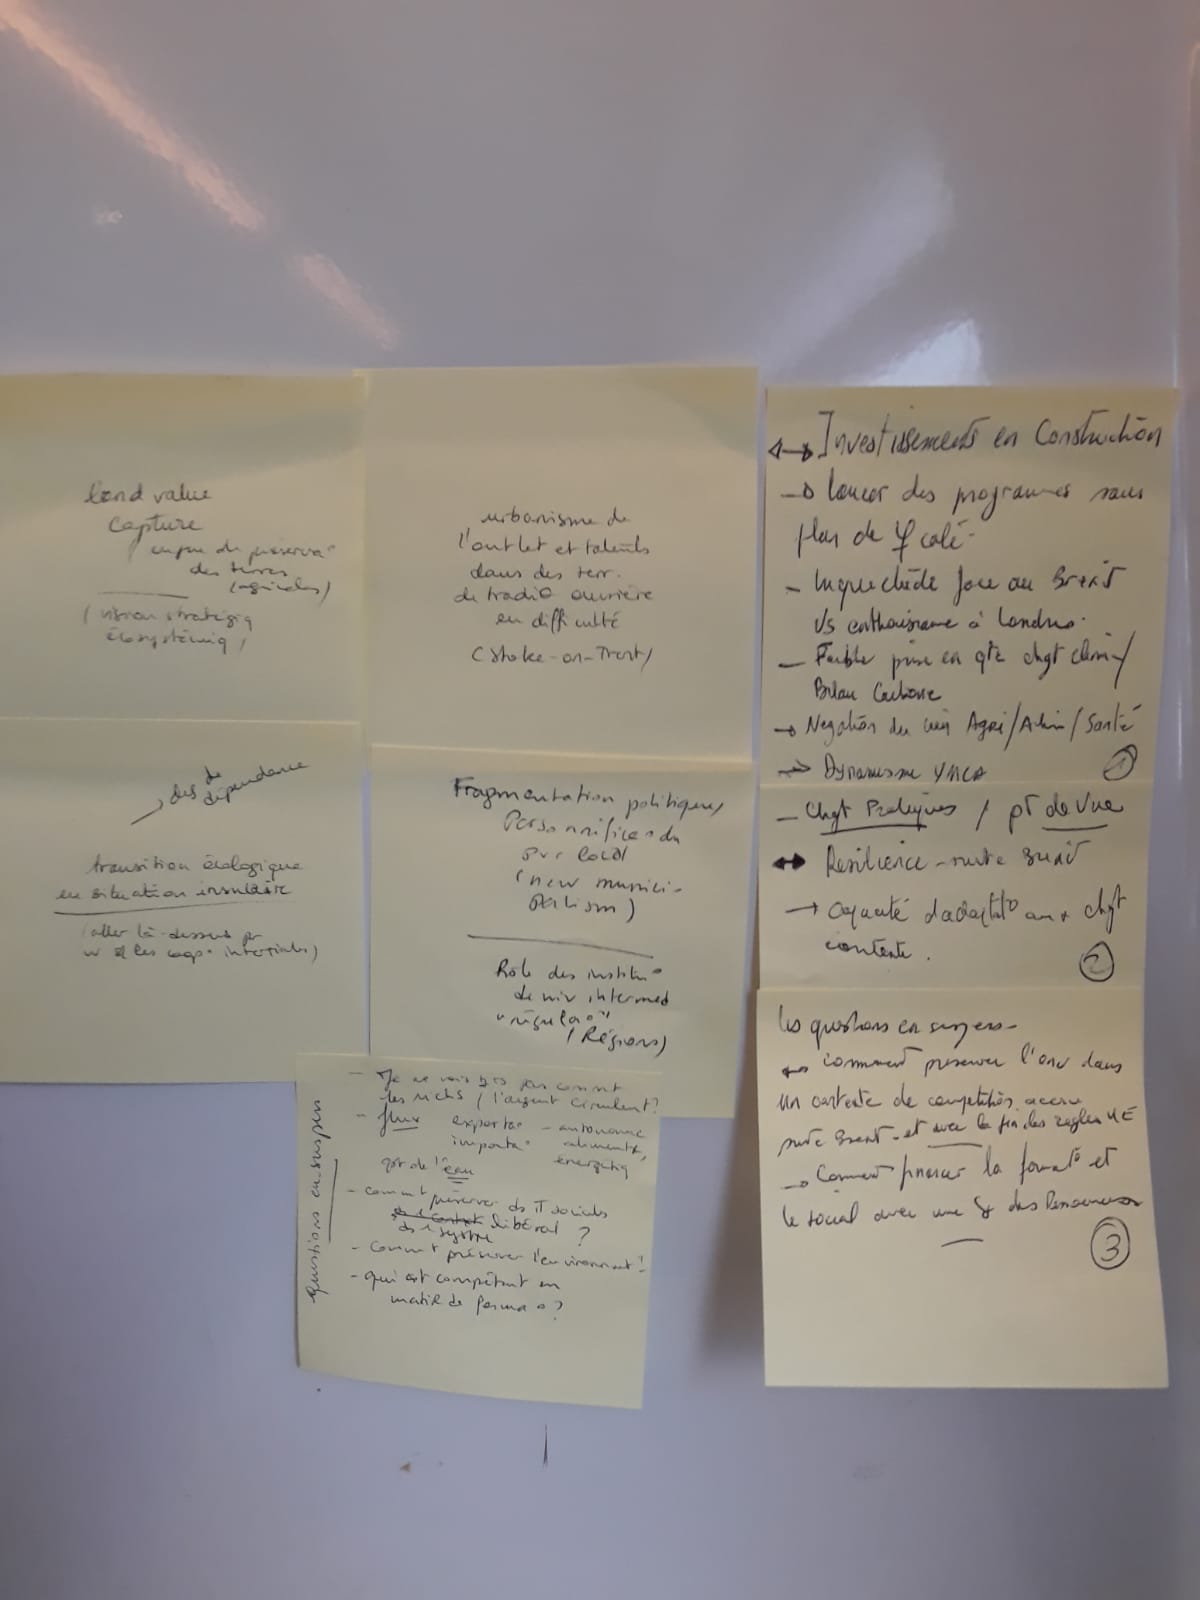 Land value
capture
des terres
(agricoles)
(vision stratégiq
écosystémiq)
urbanisme de
l'outlet et talents
dans des terr.
de tradi° ouvrière
en difficulté
(Stoke-on-Trent)
→ Investissements en Construction
→ lancer des programmes sans
plan de calé
- Inquiétude face au Brexit
Vs enthousiasme à Londres.
- Faible prise en cte chgt clim/
Bilan Carbone
→ Négation du lien Agri/Alim/Santé
→ Dynamisme YMCA
1
→ des de
dépendance
transition écologique
en situation insulaire
(aller là-dessus pr
Fragmentation politique/
Personnifica° du
pvr local
(new munici-
palism)
Rôle des institu°
de niv intermed
"régula°"
(Régions)
- Chgt Pratiques / pt de vue
↔ Résilience - suite Brexit
→ capacité d'adaptat° aux chgt
contexte.
2
Les questions en suspens -
comment préserver l'env dans
un contexte de compétition accrue
suite Brexit - et avec la fin des règles UE
→ Comment financer la format° et
le social avec une des Ressources
3
questions en suspens
- Je ne vois pas comment
les / l'argent circulent?
- flux exporta° - autonomie
importa° alimentR,
énergétiq
qst de l'eau
- comment préserver des sociaux
libéral ?
système
- comment préserver l'environnmt?
- qui est compétent en
matière de forma°?